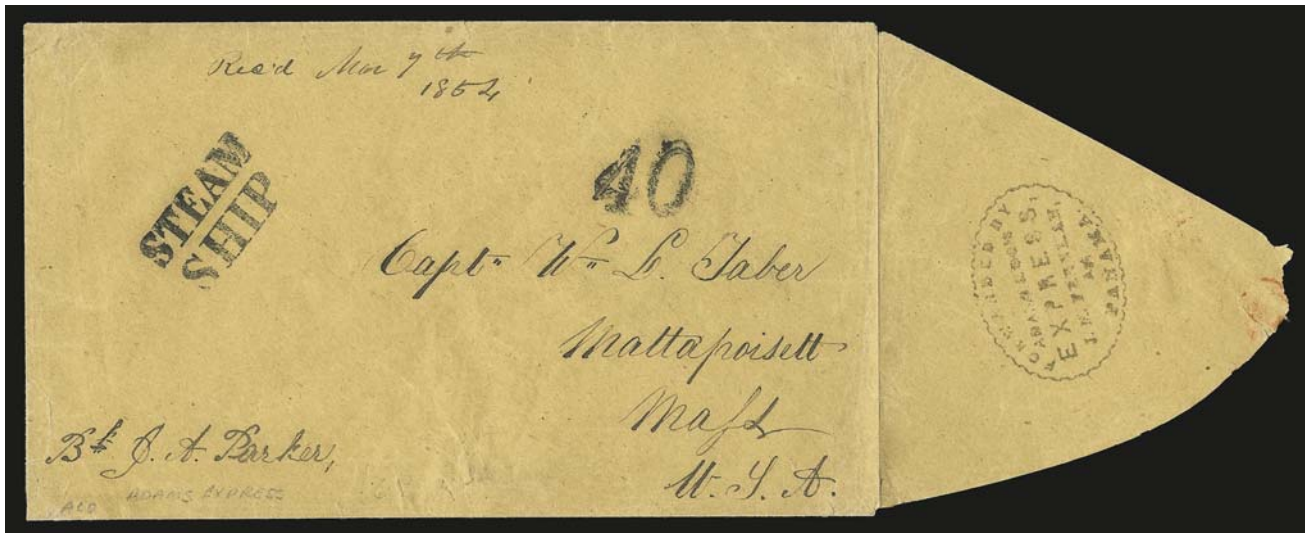 Rec'd Mar 7th
1854
STEAM
SHIP
40
Captn Wm L. Taber
Mattapoisett
Mass
U.S.A.
Bk J. A. Parker,
ADAMS EXPRESS
FORWARDED BY
EXPRESS,
PANAMA.